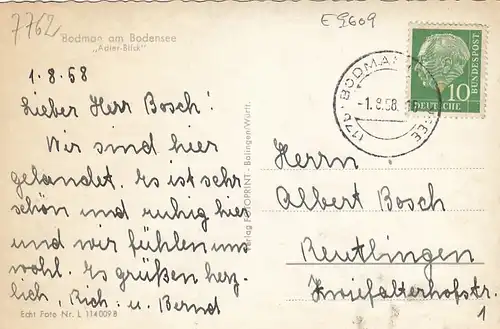 7762
E 9609
Bodman am Bodensee
„Adler-Blick"
1.8.58
Lieber Herr Bosch!
Wir sind hier
gelandet. Es ist sehr
schön und ruhig hier
und wir fühlen uns
wohl. Es grüßen herz-
lich, Rich. u. Bernd
Echt Foto Nr. L 114009 8
Verlag FOTOPRINT - Balingen/Württ.
(17b) BODMAN
-1.8.58
SEE
10
DEUTSCHE
BUNDESPOST
Herrn
Albert Bosch
Reutlingen
Zwiefalterhofstr.
1